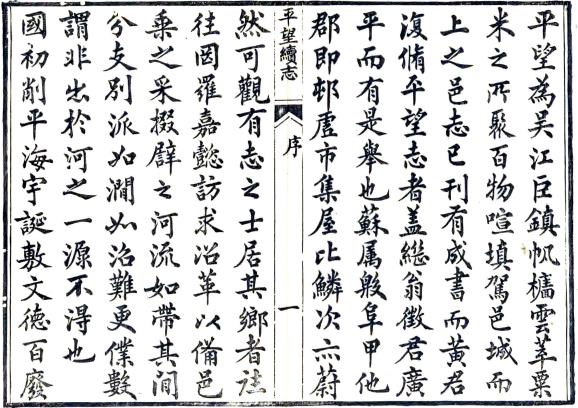 平望為吳江巨鎮帆檣雲萃粟
米之所聚百物喧填駕邑城而
上之邑志已刊有成書而黃君
復脩平望志者蓋繼翁徵君廣
平而有是舉也蘇属殷阜甲他
郡即邨廬市集屋比鱗次亦蔚
平望續志
序
一
然可觀有志之士居其鄉者往
往罔羅嘉懿訪求沿革以備邑
乘之采掇譬之河流如帶其間
分支別派如澗如沼難更僕數
謂非出於河之一源不得也
國初削平海宇誕敷文德百廢